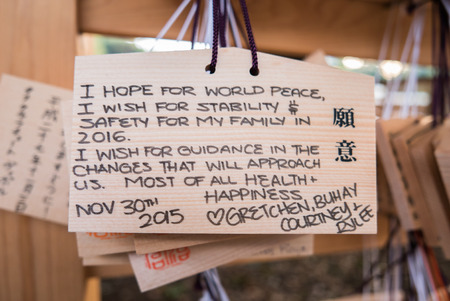 I HOPE FOR WORLD PEACE,
I WISH FOR STABILITY &
SAFETY FOR MY FAMILY IN
2016.
I WISH FOR GUIDANCE IN THE
CHANGES THAT WILL APPROACH
US. MOST OF ALL HEALTH +
HAPPINESS
NOV 30TH
2015
♡ GRETCHEN, BUHAY
COURTNEY +
願意